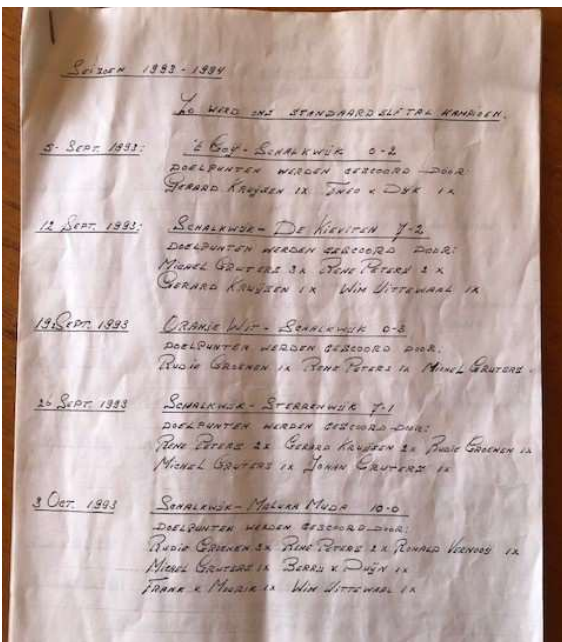 Seizoen 1993-1994
Zo werd ons standaardelftal kampioen.
5-Sept. 1993: 't Goy - Schalkwijk 0-2
Doelpunten werden gescoord door:
Gerard Kruijsen 1x Theo v Dijk 1x
12 Sept. 1993: Schalkwijk - De Kieviten 7-2
Doelpunten werden gescoord door:
Michel Gruters 3x Rene Peters 2x
Gerard Kruijsen 1x Wim Uittewaal 1x
19.Sept. 1993 Oranje Wit - Schalkwijk 0-3
Doelpunten werden gescoord door:
Rudie Groenen 1x Rene Peters 1x Michel Gruters
26 Sept. 1993 Schalkwijk - Sterrenwijk 7-1
Doelpunten werden gescoord door:
Rene Peters 2x Gerard Kruijsen 2x Rudie Groenen 1x
Michel Gruters 1x Johan Gruters 1x
3 Oct. 1993 Schalkwijk - Maluku Muda 10-0
Doelpunten werden gescoord door:
Rudie Groenen 3x Rene Peters 2x Ronald Vernooy 1x
Michel Gruters 1x Berry v Duijn 1x
Frank v Mourik 1x Wim Uittewaal 1x